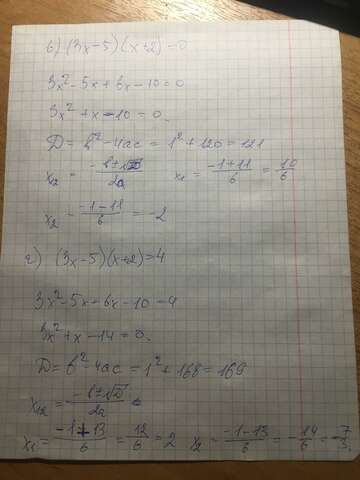 в) (3x-5)(x+2)=0
3x²-5x+6x-10=0
3x²+x-10=0.
D= b²-4ac = 1²+120=121
x₁₂ = -b±√D/2a x₁ = -1+11/6 = 10/6
x₂ = -1-11/6 = -2
г) (3x-5)(x+2)=4
3x²-5x+6x-10=4
3x²+x-14=0.
D= b²-4ac = 1²+168=169
x₁₂ = -b±√D/2a
x₁ = -1+13/6 = 12/6 = 2 x₂ = -1-13/6 = -14/6 = -7/3.